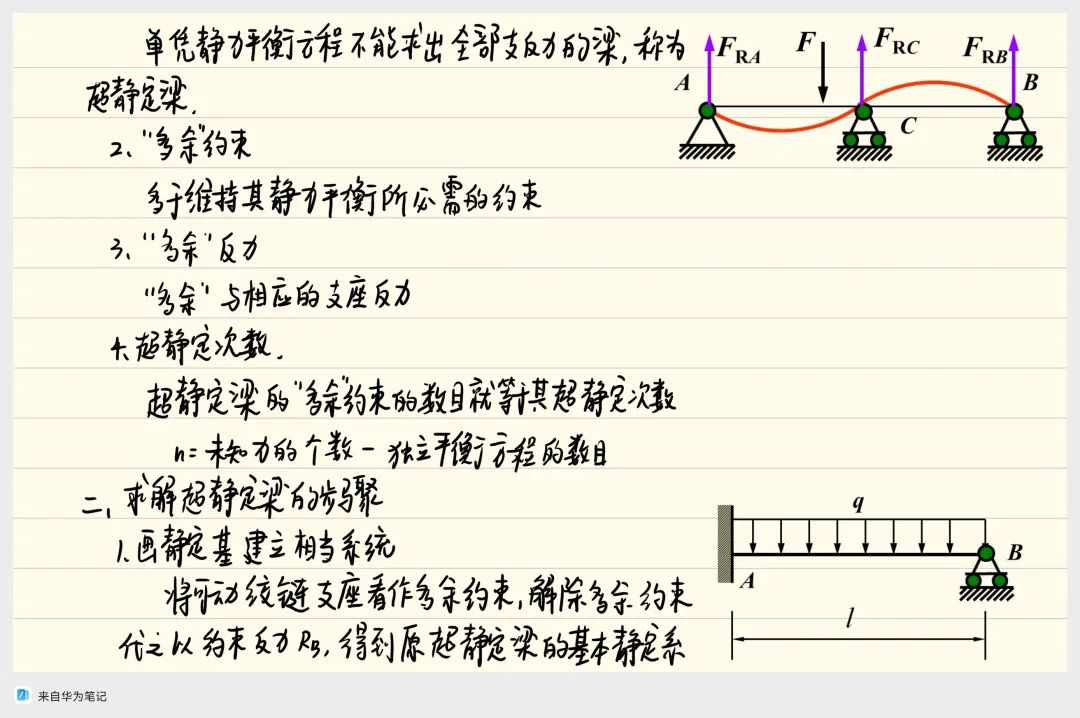 单凭静力平衡方程不能求出全部支反力的梁，称为
超静定梁.
2、“多余”约束
多于维持其静力平衡所必需的约束
3、“多余”反力
“多余”与相应的支座反力
4、超静定次数.
超静定梁的“多余”约束的数目就等于其超静定次数
n=未知力的个数－独立平衡方程的数目
二、求解超静定梁的步骤
1、画静定基建立相当系统
将可动铰链支座看作多余约束，解除多余约束
代之以约束反力 RB，得到原超静定梁的基本静定系
FRA F FRC FRB
A B
C
q
A B
l
来自华为笔记